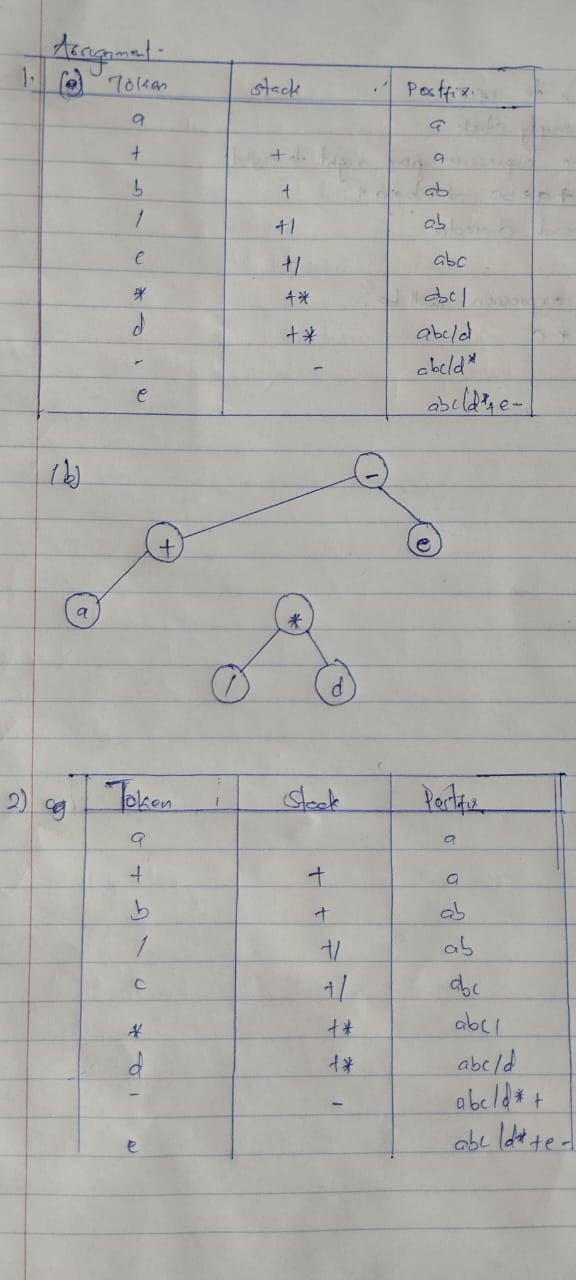 Assignment.
1. (a) Token stack Postfix
a a
+ + a
b + ab
/ +/ ab
c +/ abc
* +* abc/
d +* abc/d
- - abc/d*
e abc/d*+e-
1b)
-
+ e
a *
/ d
2) Token Stack Postfix
a a
+ + a
b + ab
/ +/ ab
c +/ abc
* +* abc/
d +* abc/d
- - abc/d*+
e abc/d*+e-